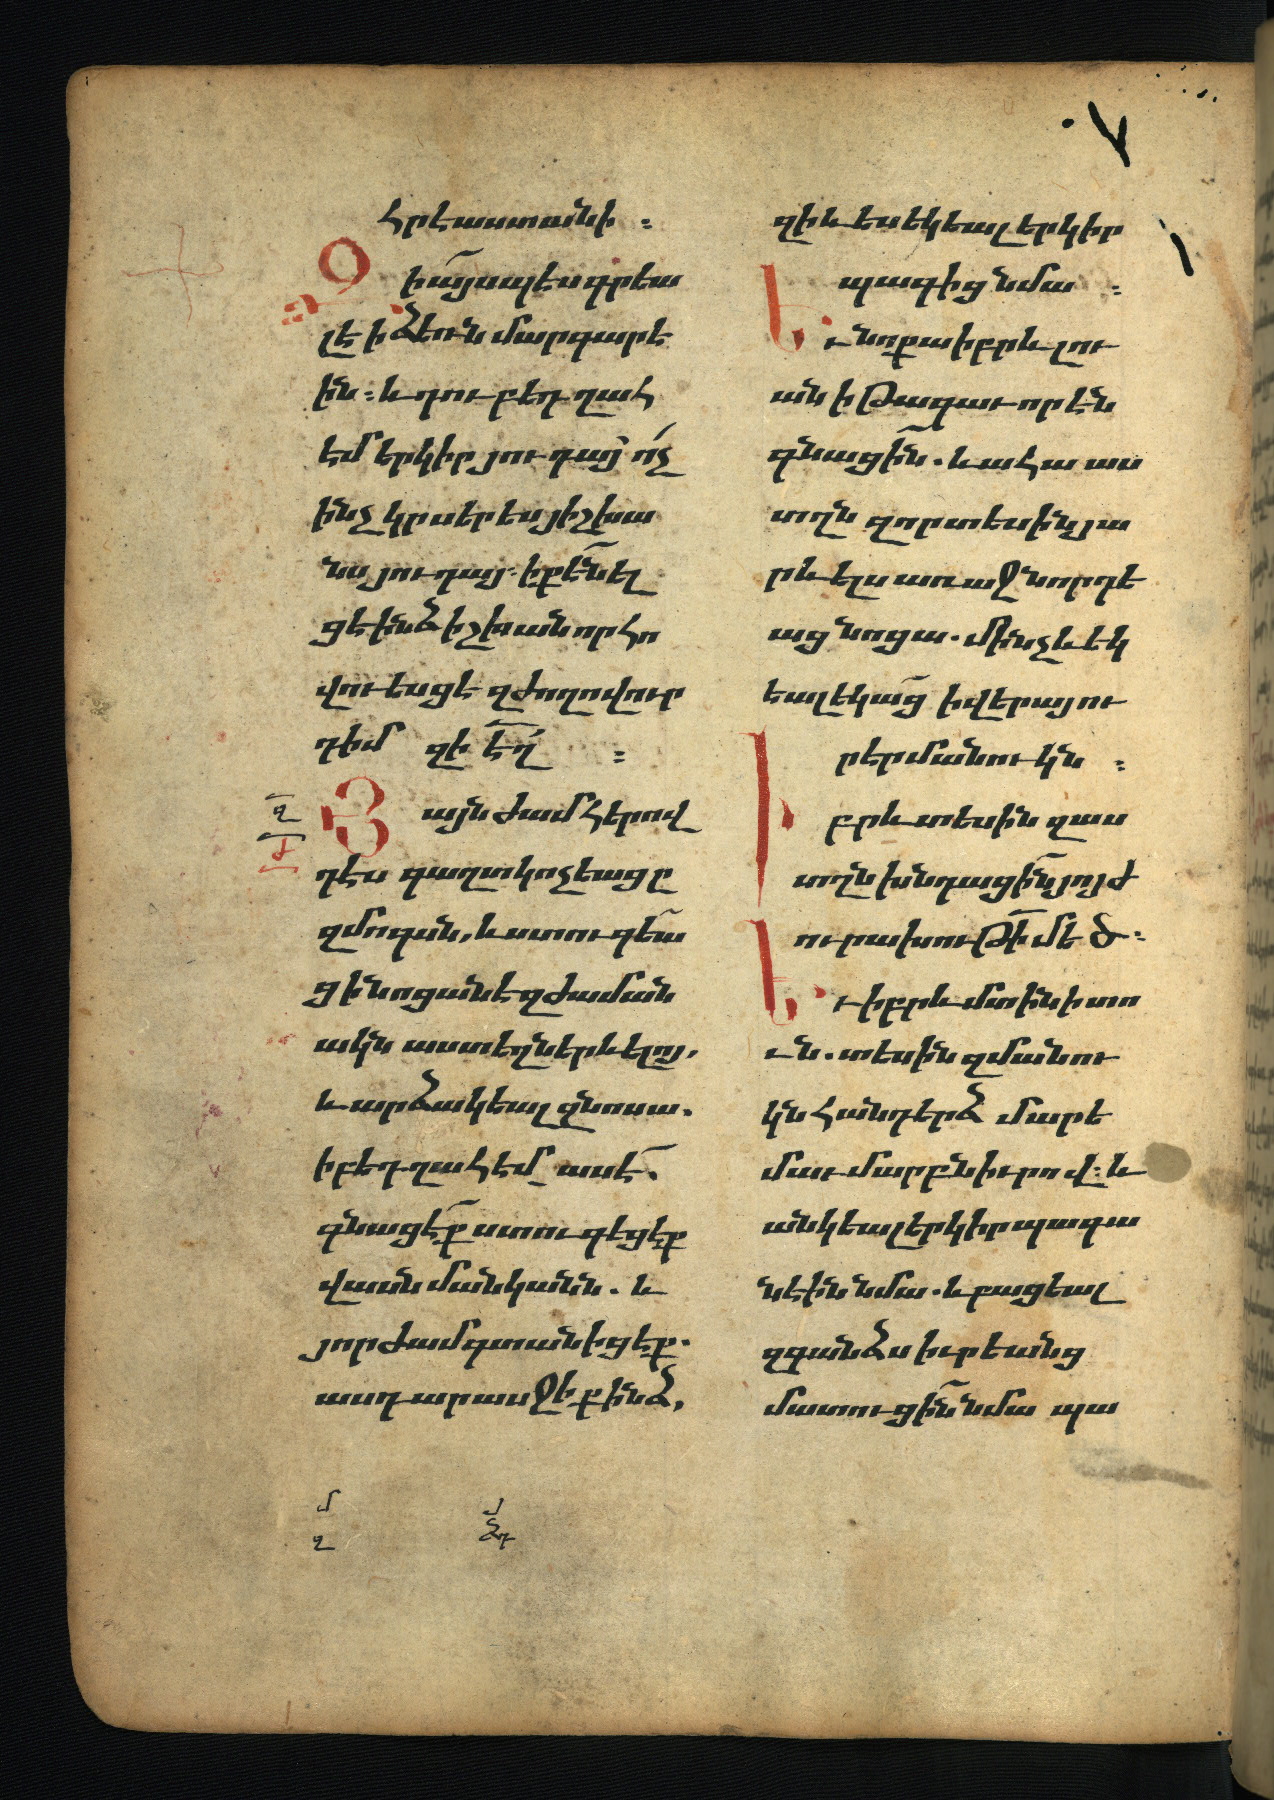 հրէաստանի :
Զի այսպէս գրեա
լէ ի ձեռն մարգարէ
ին : և դու բեդղահ
էմ երկիր յուդայ ոչ
ինչ կրսեր ես յիշխա
նս յուդայ : ի քէն ել
ցէ ինձ իշխան որ հո
վուեսցէ զժողովուր
դիմ զիեղ :
Յայնժամ հերով
դէս գաղտ կոչեաց ը
զմոգսն, և ստուգեա
ց ի նոցանէ զժաման
ակն աստեղն երևելոյ,
և արձակեալ զնոսա.
ի բեդղահէմ ասէ.
գնացէք ստուգեցէք
վասն մանկանն. և
յորժամ գտանիցէք.
ազդ արասջիք ինձ,
զի և ես եկեալ երկիր
պագից նմա :
Եւ նոքա իբրև լու
ան ի թագաւորէն
գնացին. և ահա աս
տղն զոր տեսին յա
րևելս առաջնորդե
աց նոցա. մինչև եկ
եալ եկաց ի վերայ ու
ր էր մանուկն :
Իբրև տեսին զաս
տղն խնդացին յոյժ
ուրախութի մեծ :
Եւ իբրև մտին ի տո
ւն. տեսին զմանու
կն հանդերձ մարե
մաւ մարբն իւրով : և
անկեալ երկիր պագա
նէին նմա. և բացեալ
զգանձս իւրեանց
մատուցին նմա պա